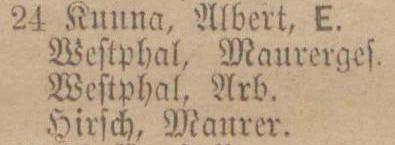 24 Kunna, Albert, E.
Weſtphal, Maurergeſ.
Weſtphal, Arb.
Hirſch, Maurer.